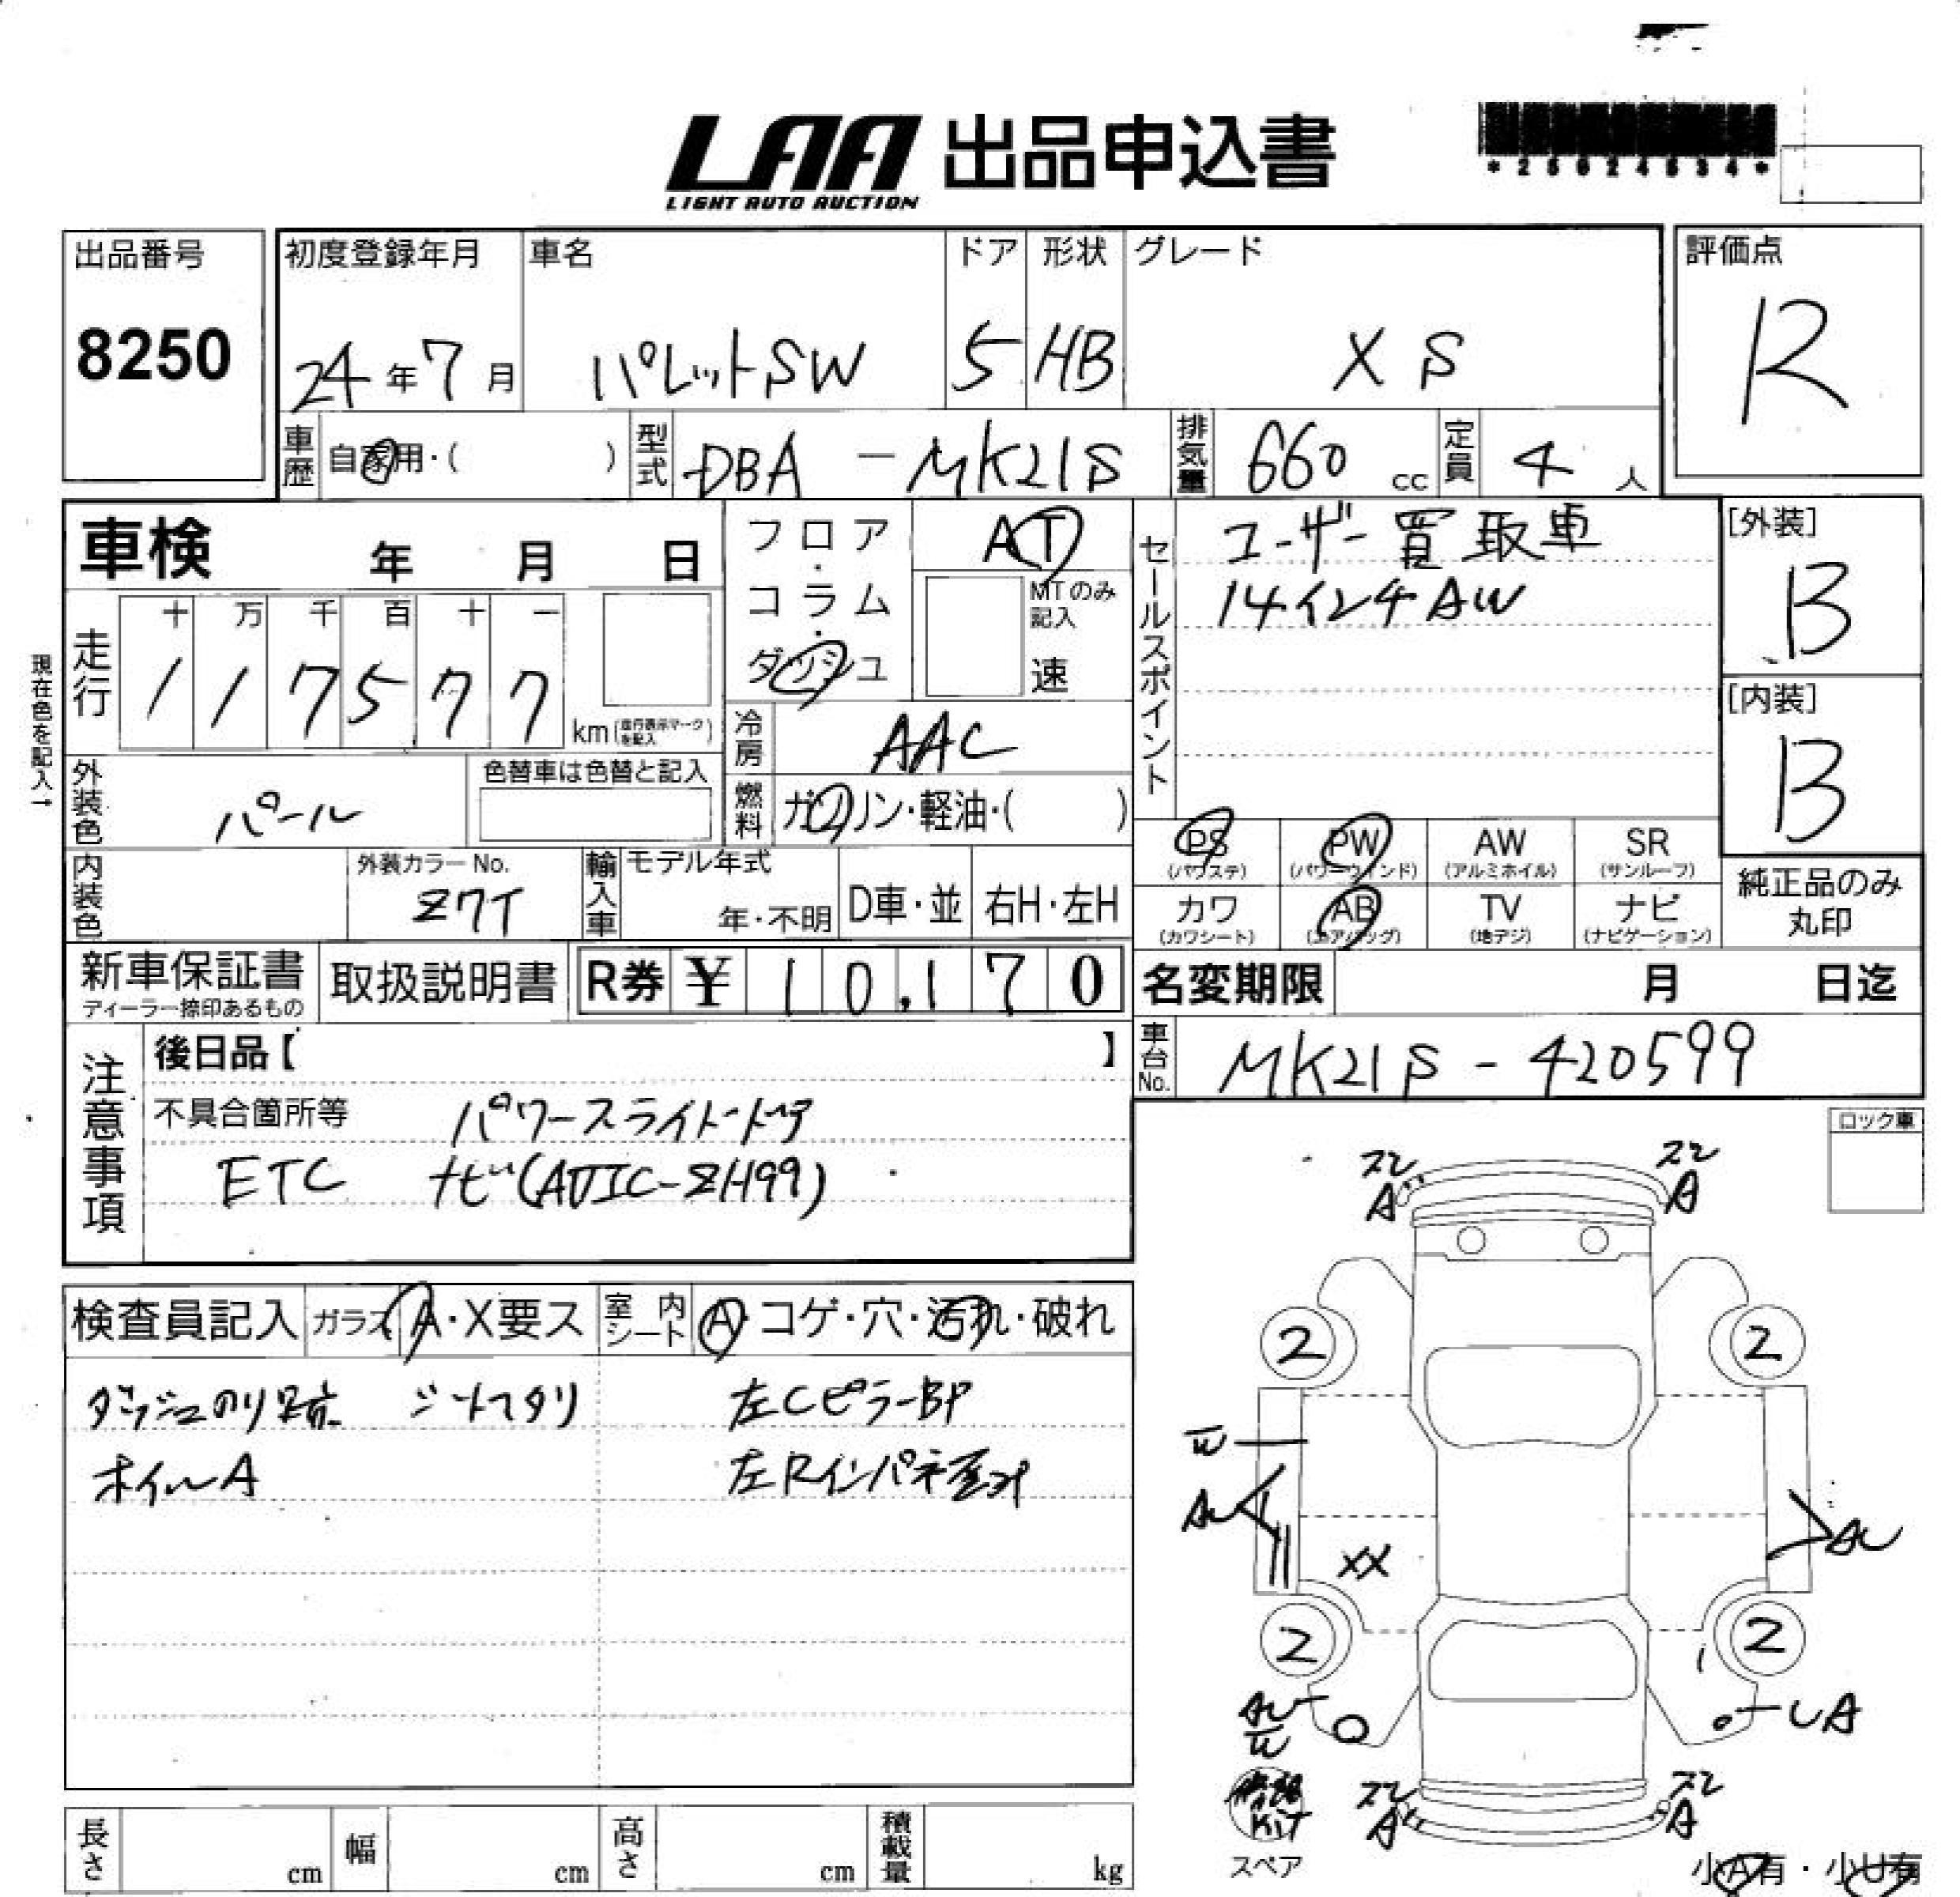 LAA 出品申込書
LIGHT AUTO AUCTION
出品番号
8250
初度登録年月
24年7月
車名
パレットSW
ドア
5
形状
HB
グレード
XS
評価点
R
車歴 自家用・( )
型式 DBA-MK21S
排気量 660 cc
定員 4 人
車検 年 月 日
フロア・コラム・ダッシュ
AT
MTのみ記入
速
セールスポイント
ユーザー買取車
14インチAW
[外装]
B
[内装]
B
現在色を記入→
走行
十 万 千 百 十 一
1 1 7 5 7 7
km (走行表示マークを記入)
冷房 AAC
外装色 パール
色替車は色替と記入
燃料 ガソリン・軽油・( )
内装色
外装カラーNo.
Z7T
輸入車
モデル年式
年・不明
D車・並
右H・左H
PS (パワステ)
PW (パワーウインド)
AW (アルミホイル)
SR (サンルーフ)
カワ (カワシート)
AB (エアバッグ)
TV (地デジ)
ナビ (ナビゲーション)
純正品のみ丸印
新車保証書
ディーラー捺印あるもの
取扱説明書
R券 ¥ 10,170
名変期限 月 日迄
車台No. MK21S-420599
注意事項
後日品【 】
不具合箇所等 パワースライドドア
ETC ナビ(AVIC-ZH99)
ロック車
検査員記入
ガラス A・X要ス
室内シート A・コゲ・穴・汚れ・破れ
ダッシュのり跡 左CピラーBP
ホイルA 左Rインパネ歪み
スレ スレ
A A
2 2
AU
AU
XX
2 2
A
KIT
スペア
スレ スレ
A A
小A有・小U有
長さ cm
幅 cm
高さ cm
積載量 kg